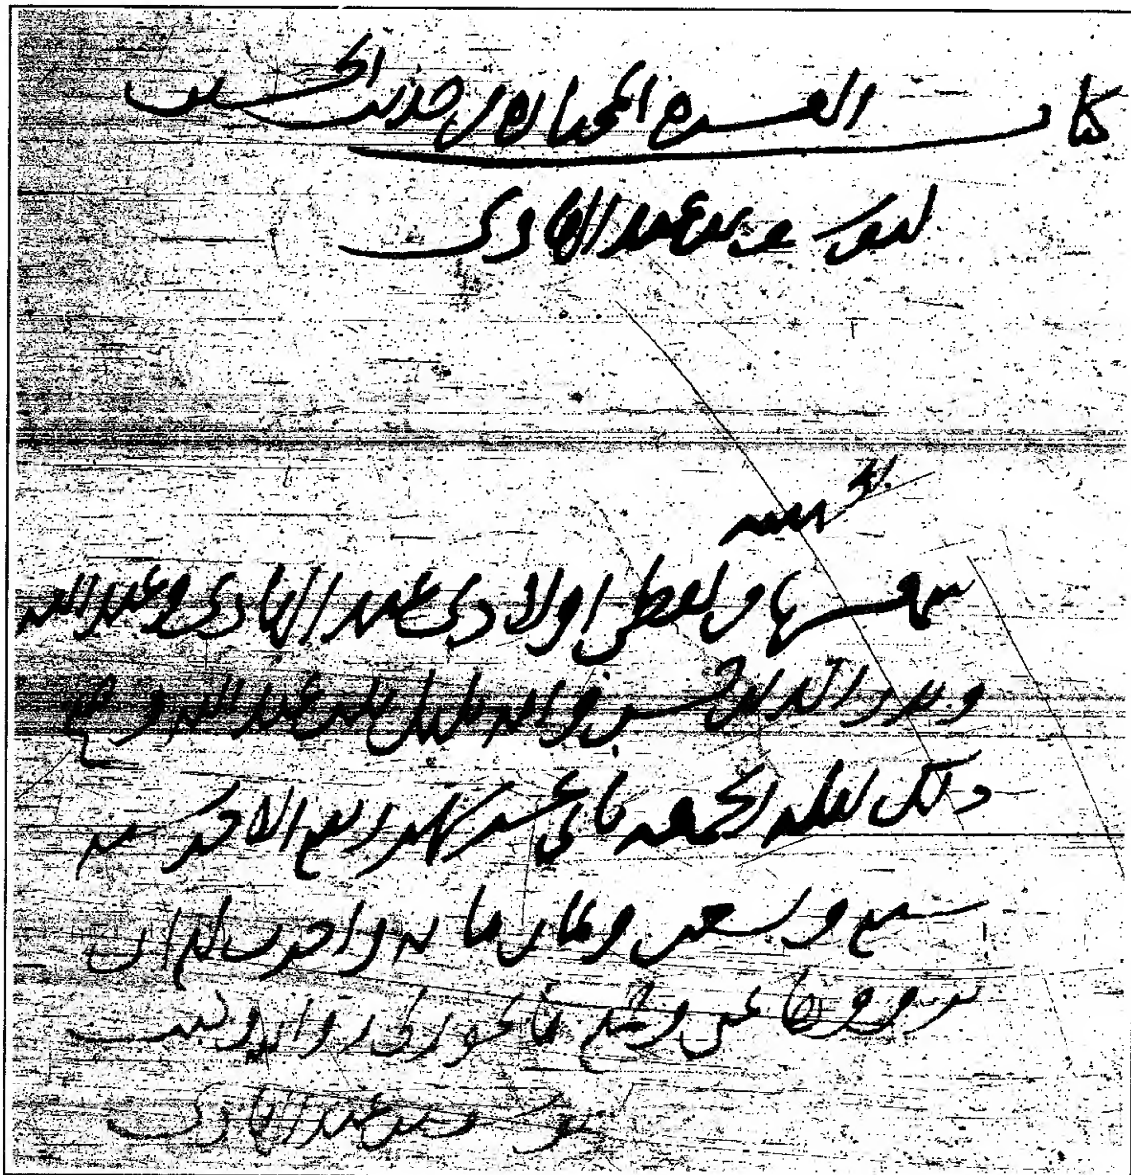 كتاب العشرة المختارة من حديث
ليوسف بن عبد الهادي
الحمد لله
سمعها من لفظي اولادي عبد الهادي وعبد الله
وبدر الدين حسن وامه بلبل بنت عبد الله وصح
ذلك ليلة الجمعة ثاني عشر شهر ربيع الاخر سنة
سبع وتسعين وثمان مائة واجزت لهم ان
يرووها عني وجميع ما يجوز لي روايته وكتب
يوسف بن عبد الهادي